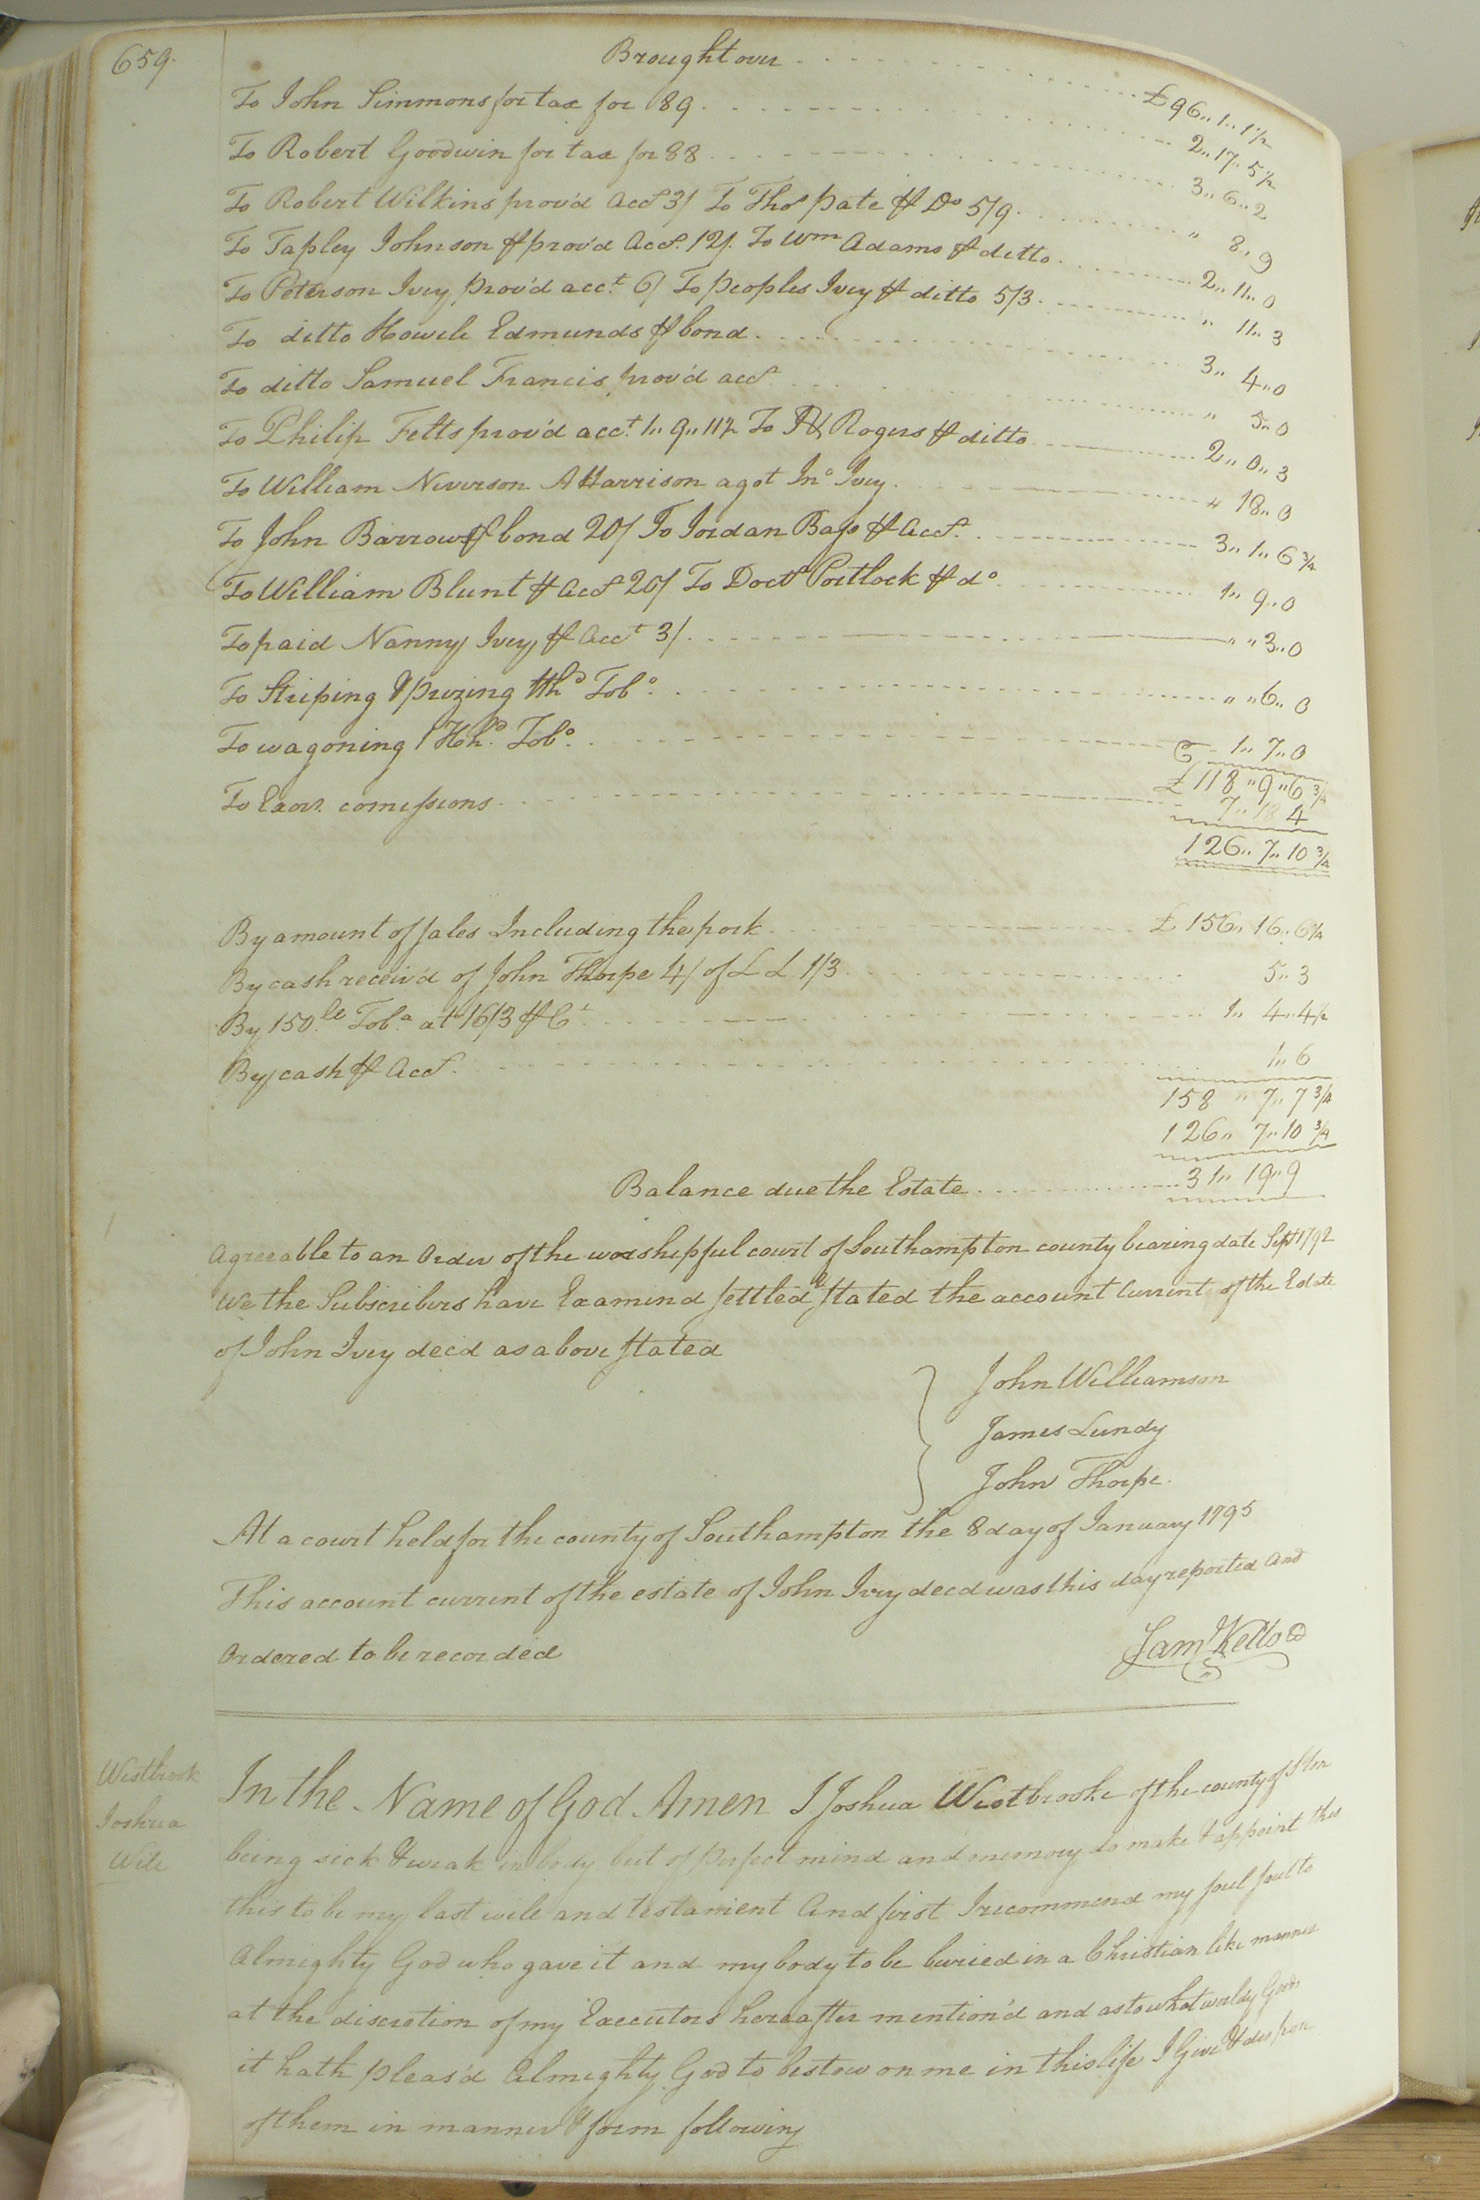 659.
Brought over £96,, 1,, 1 1/2
To John Simmons for tax for 89 2,, 17,, 5 1/2
To Robert Goodwin for tax for 88 3,, 6,, 2
To Robert Wilkins prov'd acct 3/ To Thos pate ⅌ Do 5/9 " 8,, 9
To Tapley Johnson ⅌ prov'd acct. 12/. To Wm Adams ⅌ ditto 2,, 11,, 0
To Peterson Ivey prov'd acct. 6/ To peoples Ivey ⅌ ditto 5/3 " 11,, 3
To ditto Howell Edmunds ⅌ bond 3,, 4,, 0
To ditto Samuel Francis prov'd acct " 5,, 0
To Philip Felts prov'd acct. 1,, 9,, 11 1/2 To Rogers ⅌ ditto 2,, 0,, 3
To William Niverson A Harrison agst Jno Ivey " 18,, 0
To John Barrow ⅌ bond 20/ To Jordan Bass ⅌ acct. 3,, 1,, 6 3/4
To William Blunt ⅌ acct 20/ To Doctr Portlock ⅌ do 1,, 9,, 0
To paid Nanny Ivey ⅌ acct 3/. " " 3,, 0
To Striping & prizing 1 Hhd Tobo. " " 6,, 0
To wagoning 1 Hhd. Tobo. 1,, 7,, 0
£118,, 9,, 6 3/4
To Exors. comissions 7,, 18 4
126,, 7,, 10 3/4
By amount of sales Including the pork £156,, 16,, 6 1/4
By cash receiv'd of John Thorpe 4/ of L L 1/3 5,, 3
By 150 le Toba. at 16/3 ⅌ Ct 1,, 4,, 4 1/2
By cash ⅌ acct. 1,, 6
158 " 7,, 7 3/4
126,, 7,, 10 3/4
Balance due the Estate 31,, 19,, 9
Agreeable to an Order of the worshipful court of Southampton county bearing date Sept 1792
We the Subscribers have Examind settled & stated the account Current of the Estate
of John Ivey decd as above stated
John Williamson
James Lundy
John Thorpe.
At a court held for the county of Southampton the 8 day of January 1795
This account current of the estate of John Ivey decd was this day reported and
Ordered to be recorded
Saml Kello CC
Westbrook
Joshua
Will
In the Name of God Amen I Joshua Westbrooke of the county of S ton
being sick & weak in body but of perfect mind and memory do make & appoint this
this to be my last will and testament And first I recommend my soul soul to
Almighty God who gave it and my body to be buried in a Christian like manner
at the discretion of my Executors hereafter mention'd and as to what worldy Goods
it hath pleas'd Almighty God to bestow on me in this life I Give & dispose
of them in manner & form following